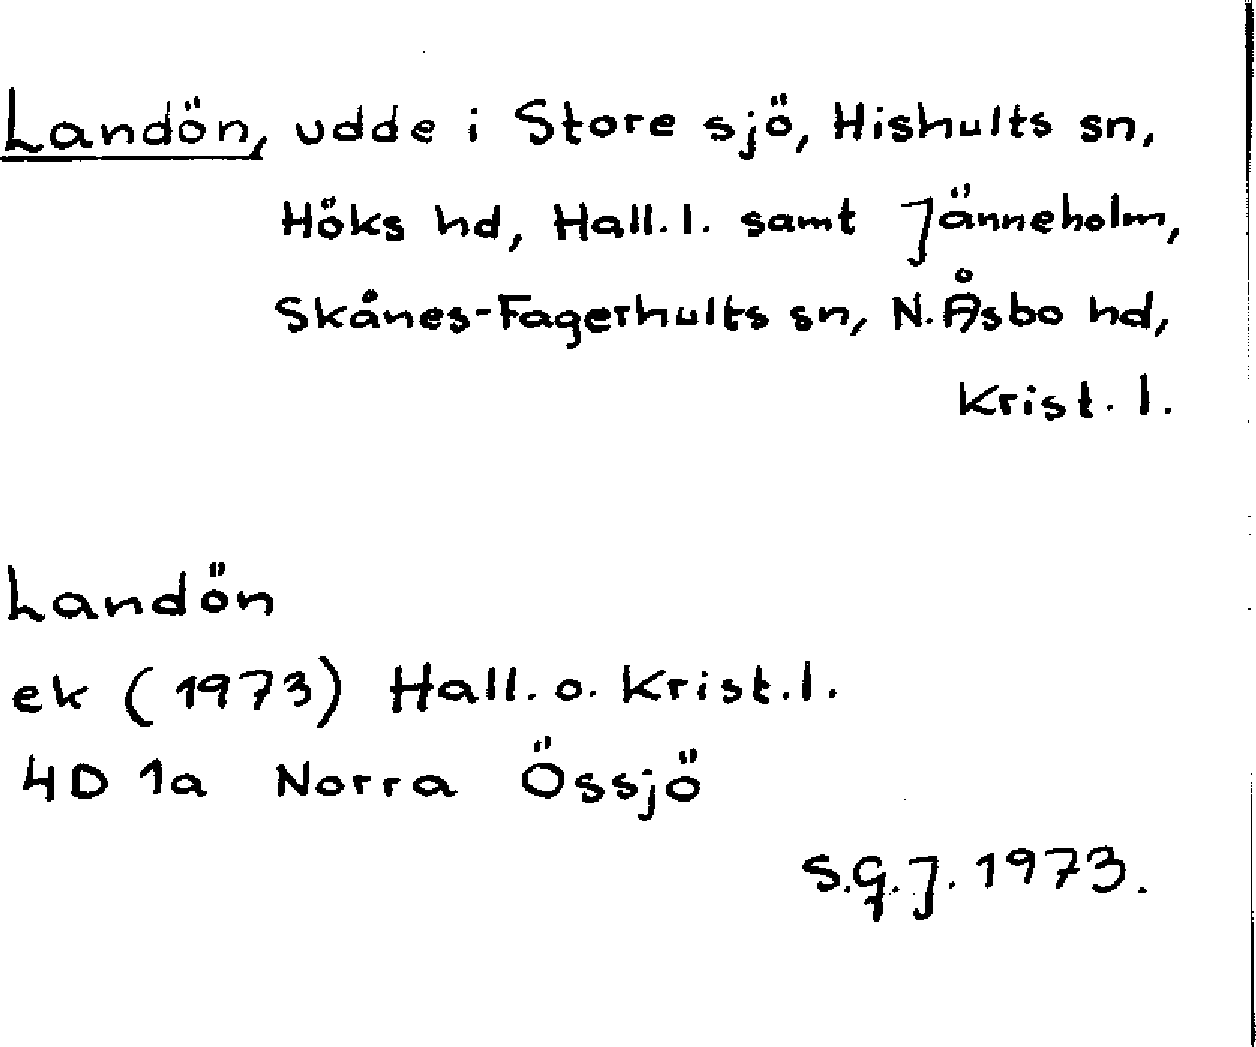 Landön, udde i Store sjö, Hishults sn,
Höks hd, Hall. l. samt Jänneholm,
Skånes-Fagerhults sn, N. Åsbo hd,
Krist. l.
Landön
ek (1973) Hall. o. Krist. l.
4D 1a Norra Össjö
S.G.J. 1973.